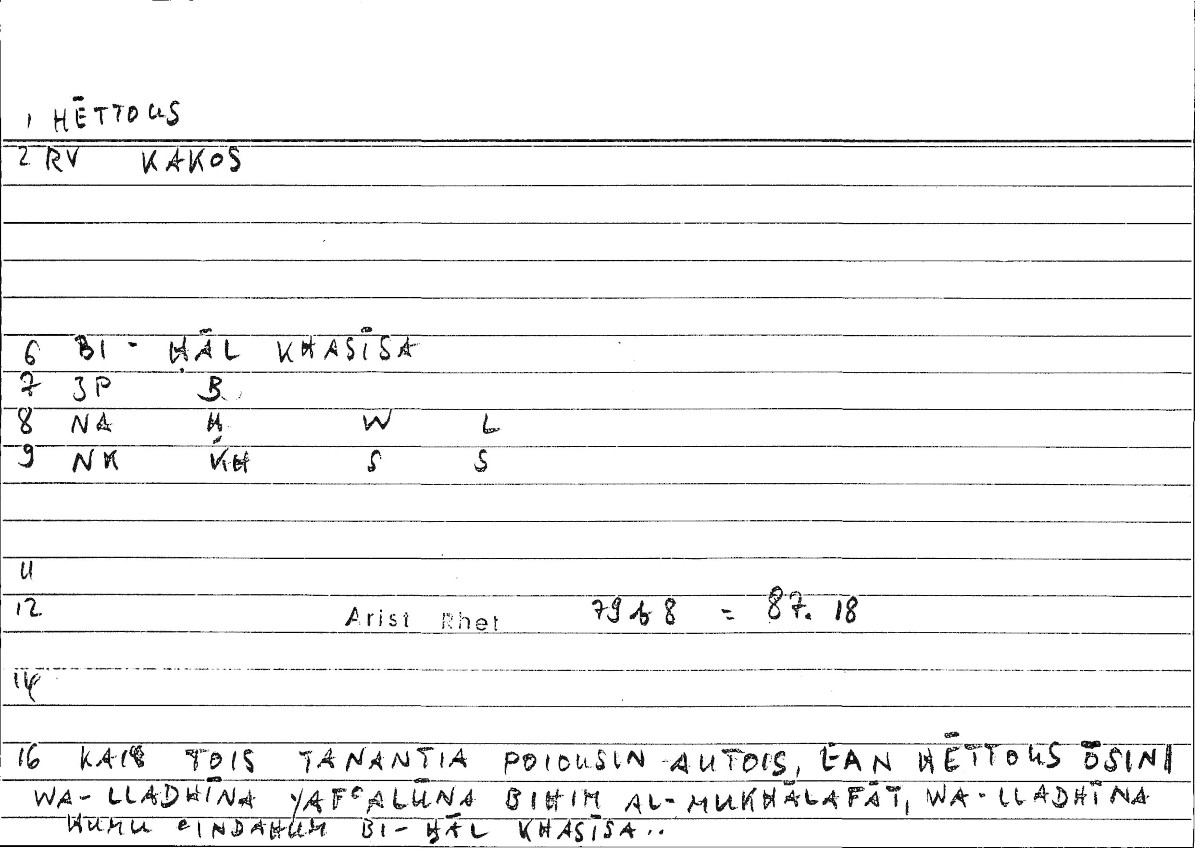 1 HĒTTOUS
2 RV KAKOS
6 BI - ḤĀL KHASĪSA
7 3P B
8 NA Ḥ W L
9 NK KH S S
11
12 Arist Rhet 79b8 = 87. 18
14
16 KAI TOIS TANANTIA POIOUSIN AUTOIS, EAN HĒTTOUS ŌSIN
WA-LLADHĪNA YAFᶜALŪNA BIHIM AL-MUKHĀLAFĀT, WA-LLADHĪNA
HUMU ᶜINDAHUM BI-ḤĀL KHASĪSA..